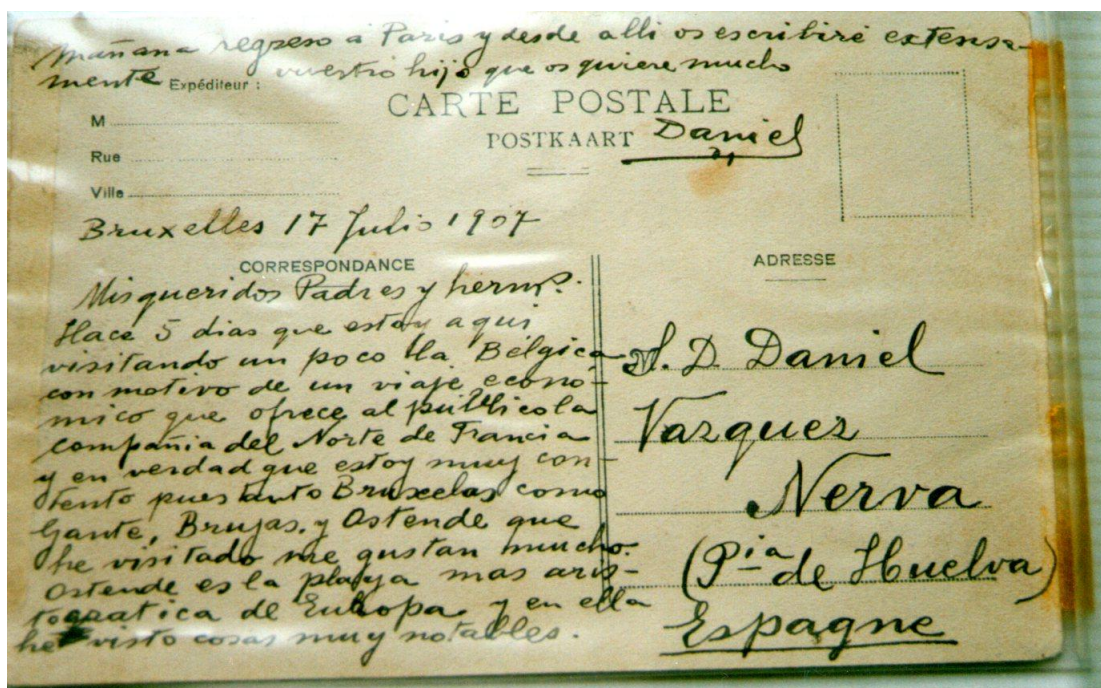 Mañana regreso á Paris y desde alli os escribiré extensa-
mente vuestro hijo que os quiere mucho
Expéditeur :
CARTE POSTALE
M
POSTKAART Daniel
Rue
Ville
Bruxelles 17 Julio 1907
CORRESPONDANCE
Mis queridos Padres y hermos.
Hace 5 dias que estoy aqui
visitando un poco la Bélgica
con motivo de un viaje econó-
mico que ofrece al público la
compañia del Norte de Francia
y en verdad que estoy muy con-
tento pues tanto Bruxelas como
Gante, Brujas, y Ostende que
he visitado me gustan mucho.
Ostende es la playa mas aris-
tocratica de Europa y en ella
he visto cosas muy notables.
ADRESSE
D. Daniel
Vazquez
Nerva
(Pia de Huelva)
Espagne